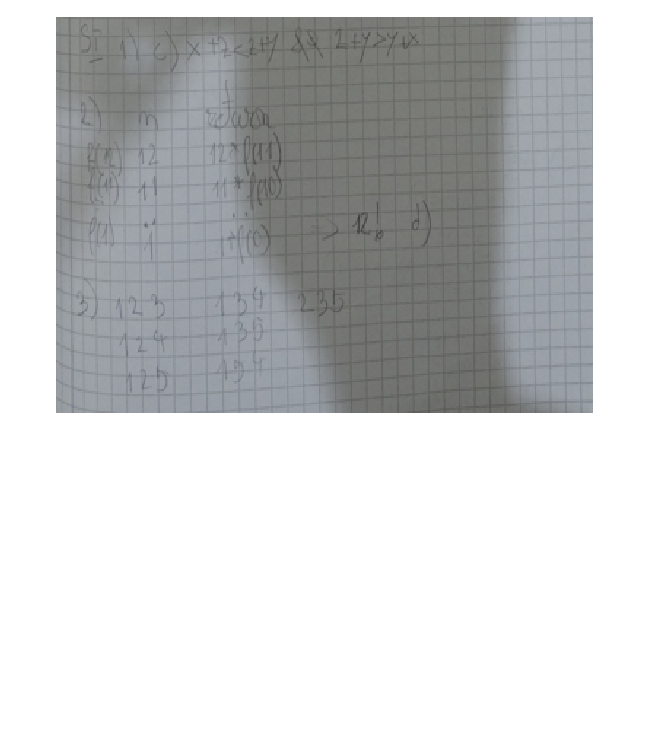 SI 1) c) x +2 < 2+y && 2+y>y
2) n return
f(12) 12 12*f(11)
f(11) 11 11*f(10)
f(1) 1 1*f(0) => d)
3) 123 134 235
124 135
125 154